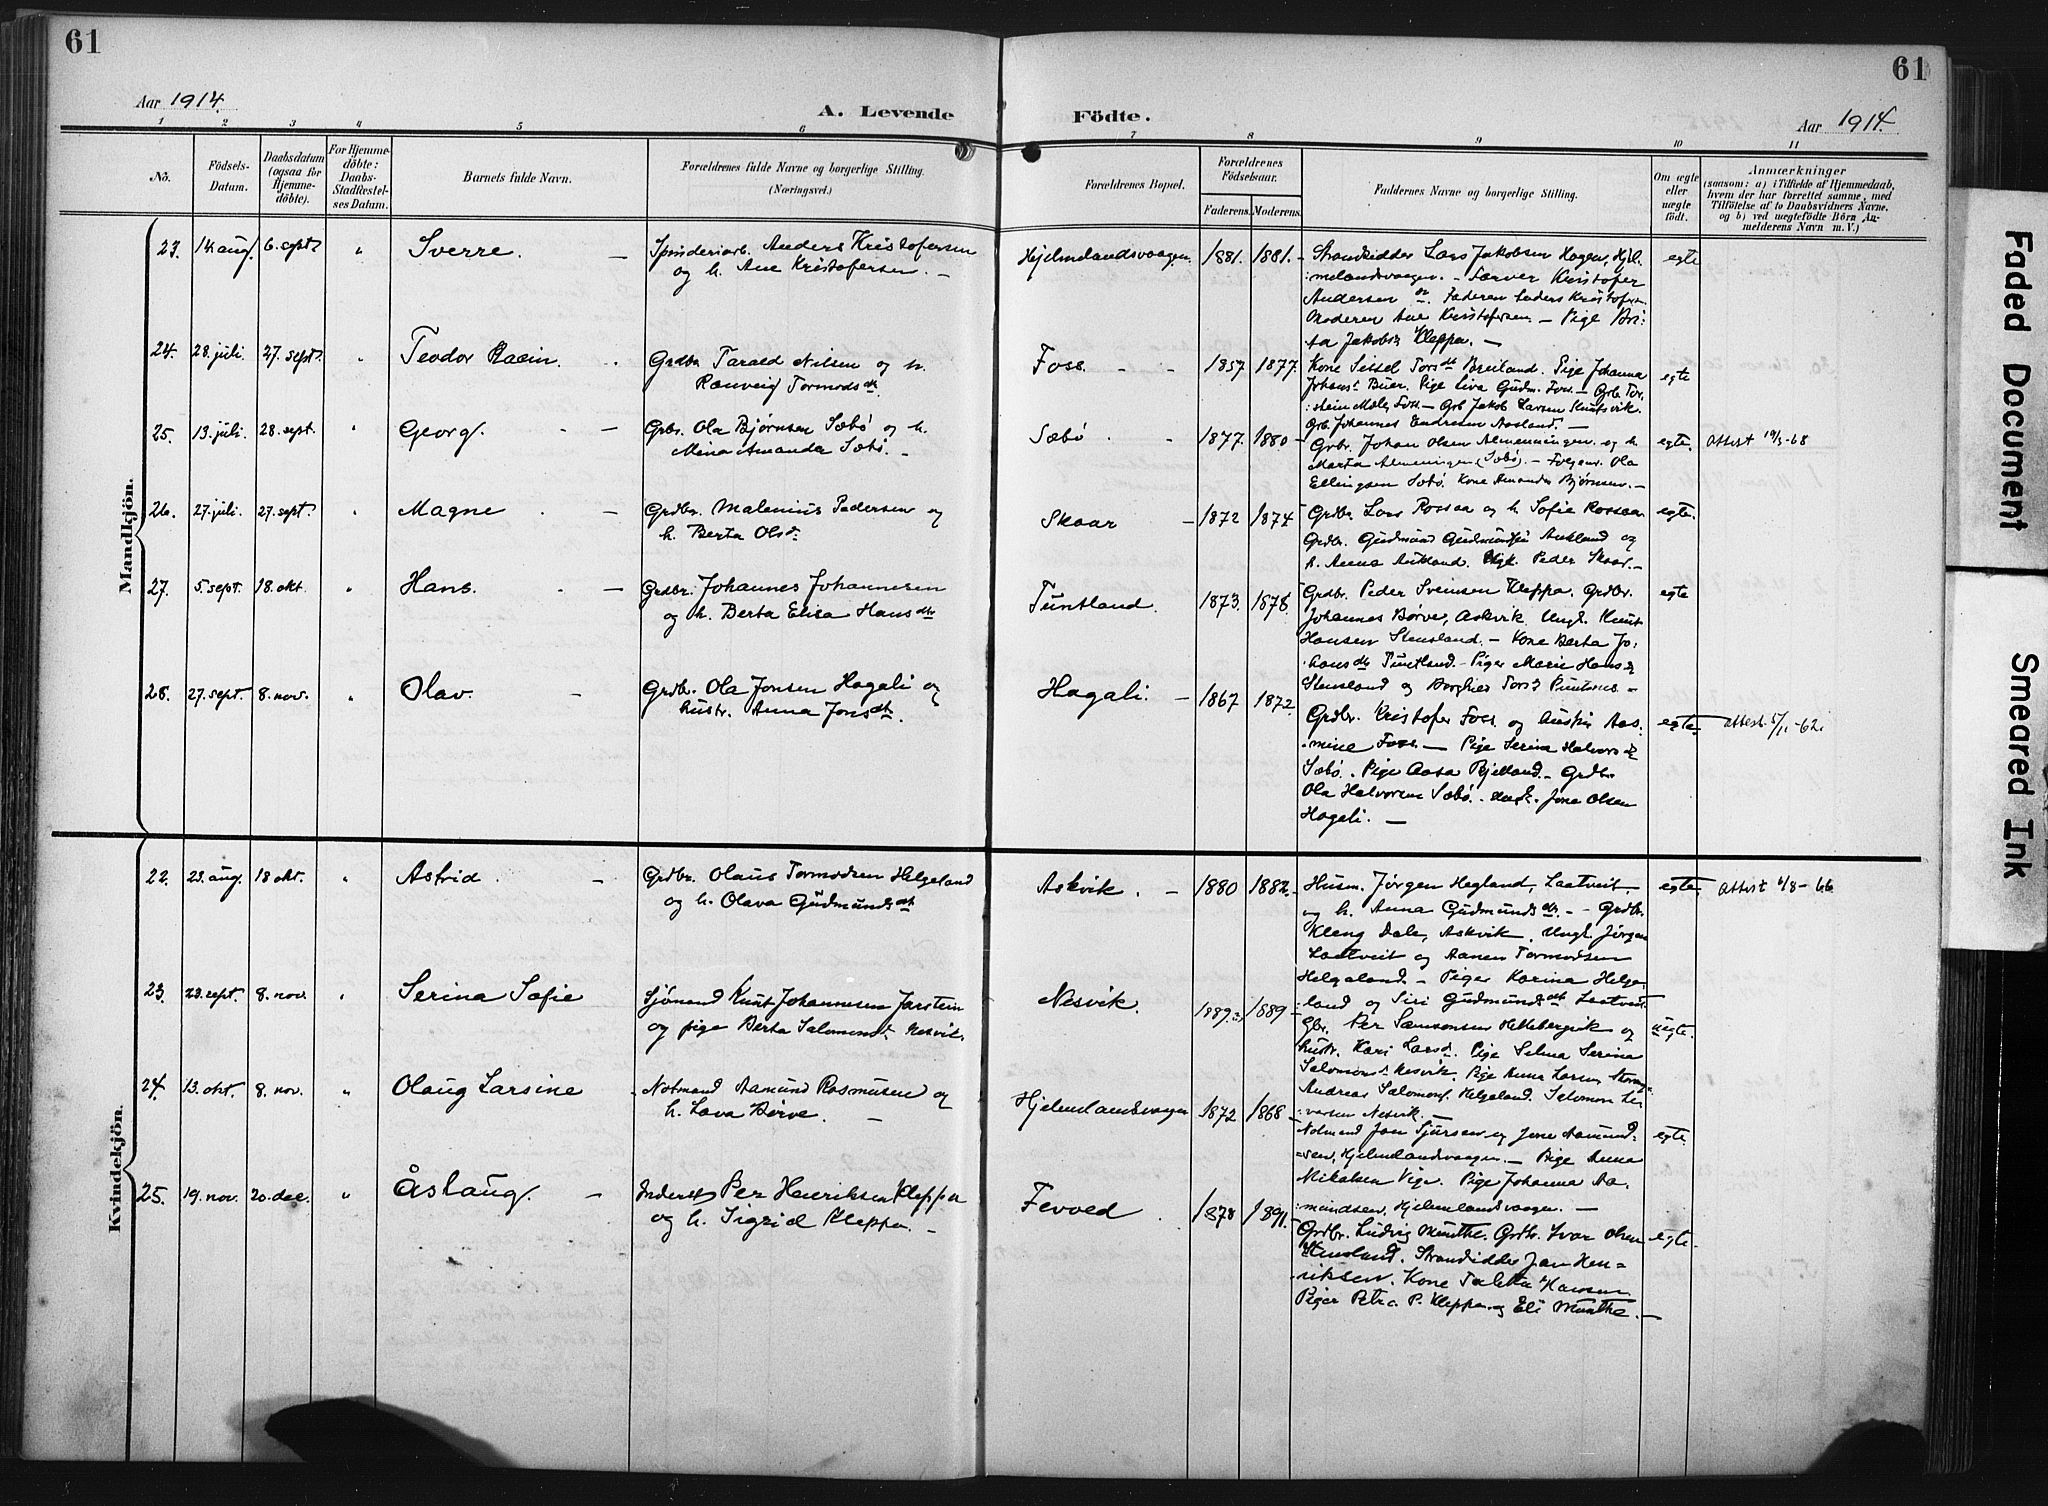 61
61
Aar 1914.
A. Levende
Födte.
Aar 1914.
1 2 3 4 5 6 7 8 9 10 11
No.
Födsels-
Datum.
Daabsdatum
(ogsaa for
Hjemme-
döbte).
For Hjemme-
döbte:
Daabs-
Stadfæstel-
ses Datum.
Barnets fulde Navn.
Forældrenes fulde Navne og borgerlige Stilling.
(Næringsvei.)
Forældrenes Bopæl.
Forældrenes
Födselsaar.
Faderens. Moderens.
Faddernes Navne og borgerlige Stilling.
Om ægte
eller
uægte
födt.
Anmærkninger
(saasom: a) i Tilfælde af Hjemmedaab,
hvem der har forrettet samme, med
Tilföielse af to Daabsvidners Navne,
og b) ved uægtefödte Börn An-
melderens Navn m. V.)
Mandkjön.
23. 14 aug. 6. sept. " Sverre. —
Spinderiarb. Anders Kristofersen
og h. Ane Kristofersen. —
Hjelmlandsvaagen. 1881. 1881.
Strandsidder Lars Jakobsen Hagen, Hjel-
melandsvaagen. — Farver Kristofer
Andersen
Faderen Anders Kristofer-
Moderen Ane Kristofersen — Pige Bri-
ta Jakobsd. Kleppa. —
egte
24. 28. juli. 27. sept. " Teodor Racin.
Grdbr. Tarald Nilsen og h.
Ranveig Tormodsdt.
Foss. - - 1857. 1877.
Kone Sissel Torsdt Breiland. Pige Johanna
Johanst. Buer. Pige Siva Gudm. Foss. — Grb. Tor-
stein Foss — Grb. Jakob Larsen Knutsvik.
Grb. Johannes Endresen Aasland. —
egte
25. 13. juli. 28. sept. " Georg. -
Grbr. Ola Bjørnsen Sæbø og h.
Mina Amanda Sæbø. —
Sæbø. - 1877. 1880
Grbr. Johan Olsen Almenningen og h.
Marta Almenningen (Sæbø). — Ola
Ellingsen Sæbø. Kone Amanda Bjørnsen. —
egte. Attest 19/3-68
26. 27. juli. 27. sept. " Magne -
Grdbr. Malenius Pedersen og
h. Berta Olsd.
Skaar — 1872 1874
Grdbr. Lars Rossaa og h. Sofie Rossaa.
Grdbr. Gudmund Gudmundsen Aukland og
h. Anna Aukland. Ungk. Peder Skaar. —
egte.
27. 5. sept. 18. okt. " Hans. —
Grdbr. Johannes Johannesen
og h. Berta Elisa Hansdtr.
Tuntland. 1873. 1878.
Grdbr. Peder Sveinsen Kleppa. Grdbr.
Johannes Børve, Askvik. Ungk. Knut
Hansen Stensland. — Kone Berta Jo-
hansdt. Tuntland. — Piger Marie Hansd.
Stensland og Borghild Torsd. —
egte
28. 27. sept. 8. nov. " Olav. —
Grdbr. Ola Jonsen Hagali og
hustr. Anna Jonsdt.
Hagali. — 1867 1872.
Grdbr. Kristofer Foss. og hustru Aas-
mine Foss. — Pige Serina Halvorsdt.
Sæbø. Pige Aasa Bjelland. — Grdbr.
Ola Halvorsen Sæbø. Ungk. Jone Olsen
Hagali. —
egte. Attest 5/11-62.
Kvindekjön.
22. 23. aug. 18 okt. " Astrid. —
Grdbr. Olaus Tormodsen Helgeland
og h. Olava Gudmundsdt.
Askvik. — 1880 1882.
Husm. Jørgen Hegland, Laatveit
og h. Anna Gudmundsdt. — Grdbr.
Kleng Dale, Askvik. Ungk. Jørgen
Laatveit og Aanen Tormodsen
Helgaland. — Piger Karina Helga-
land og Siri Gudmundsdt. Laatveit.
egte. Attest 6/8-66
23. 23. sept. 8. nov. " Serina Sofie
Sjømand Knut Johannesen Jarstein
og pige Berta Salomonst. Nesvik.
Nesvik. 1889. 1889
Gbr. Per Samsonsen Hettebergvik og
hustr. Kari Larsd. Pige Selma Serina
Salomonst. Nesvik. Pige Anna Larsen
Andreas Salomons. Helgeland. Salomon Si-
varsen Nesvik. —
uegte.
24. 13. okt. 8. nov. " Olaug Larsine
Notmand Aamund Rasmusen og
h. Lava Børve. —
Hjelmlandsvaagen 1872 1868
Notmand Jon Sjursen og Jone Aamund-
sen, Hjelmlandsvaagen. — Pige Anna
Mikalsen Vige. Pige Johanna Aa-
mundsen, Hjelmlandsvaagen. —
egte.
25. 19. nov. 20. dec. " Åslaug. —
Inderst Per Henriksen Kleppa
og h. Sigrid Kleppa. —
Fevold 1878 1891.
Grdbr. Ludvig Munthe. Grdbr. Ivar Olsen
Stensland. Strandsidder Jon Hen-
riksen. Kone Taletta Hansen
Piger Petra P. Kleppa og Eli Munthe. —
egte.
Faded Document
Smeared Ink